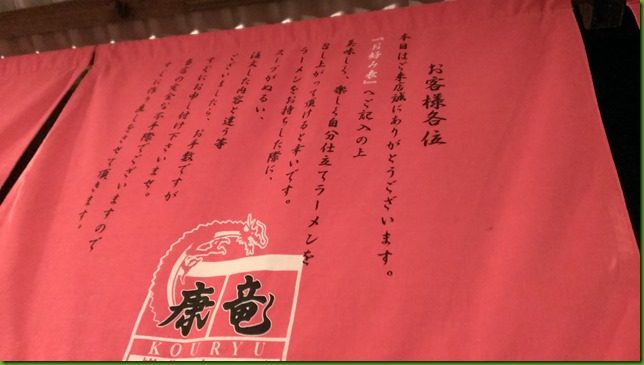 お客様各位
本日はご来店誠にありがとうございます。
『お好み表』へご記入の上
美味しく、楽しく自分仕立てラーメンを
召し上がって頂けると幸いです。
ラーメンをお持ちした際に、
スープがぬるい、
注文した内容と違う等
ございましたら、お手数ですが
すぐにお申し付け下さいませ。
当店の完全な不手際でございますので
すぐに作り直しをさせて頂きます。
康竜
KOURYU